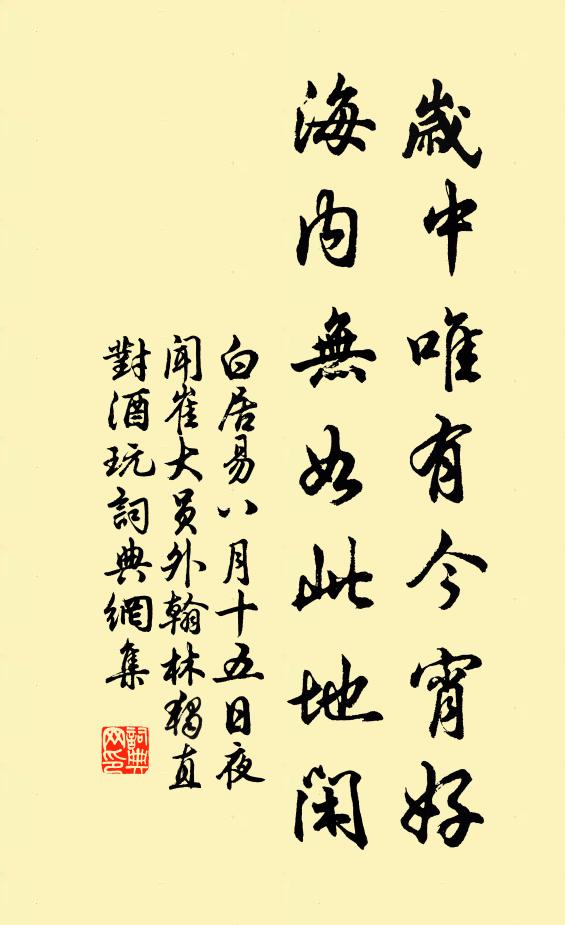 歲中唯有今宵好
海内無如此地閑
白居易八月十五日夜
聞崔大員外翰林獨直
對酒玩詞典網集
詞典
网印